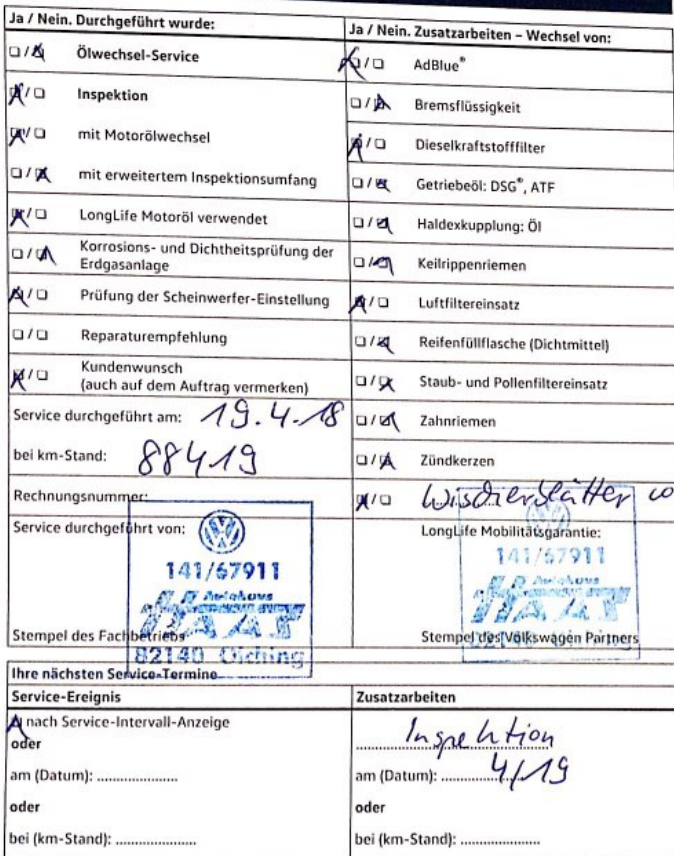 Ja / Nein. Durchgeführt wurde:
☐ / ☒ Ölwechsel-Service
☒ / ☐ Inspektion
☒ / ☐ mit Motorölwechsel
☐ / ☒ mit erweitertem Inspektionsumfang
☒ / ☐ LongLife Motoröl verwendet
☐ / ☒ Korrosions- und Dichtheitsprüfung der
Erdgasanlage
☒ / ☐ Prüfung der Scheinwerfer-Einstellung
☐ / ☐ Reparaturempfehlung
☒ / ☐ Kundenwunsch
(auch auf dem Auftrag vermerken)
Service durchgeführt am: 19.4.18
bei km-Stand: 88419
Rechnungsnummer:
Service durchgeführt von:
141/67911
Autohaus
HAAS
Stempel des Fachbetriebs
82140 Olching
Ja / Nein. Zusatzarbeiten – Wechsel von:
☒ / ☐ AdBlue®
☐ / ☒ Bremsflüssigkeit
☒ / ☐ Dieselkraftstofffilter
☐ / ☒ Getriebeöl: DSG®, ATF
☐ / ☒ Haldexkupplung: Öl
☐ / ☒ Keilrippenriemen
☒ / ☐ Luftfiltereinsatz
☐ / ☒ Reifenfüllflasche (Dichtmittel)
☐ / ☒ Staub- und Pollenfiltereinsatz
☐ / ☒ Zahnriemen
☐ / ☒ Zündkerzen
☒ / ☐ Wischerblätter
LongLife Mobilitätsgarantie:
141/67911
Autohaus
HAAS
Stempel des Volkswagen Partners
Ihre nächsten Service-Termine
Service-Ereignis
☒ nach Service-Intervall-Anzeige
oder
am (Datum): ....................
oder
bei (km-Stand): ....................
Zusatzarbeiten
Inspektion
am (Datum): 4/19
oder
bei (km-Stand): ....................